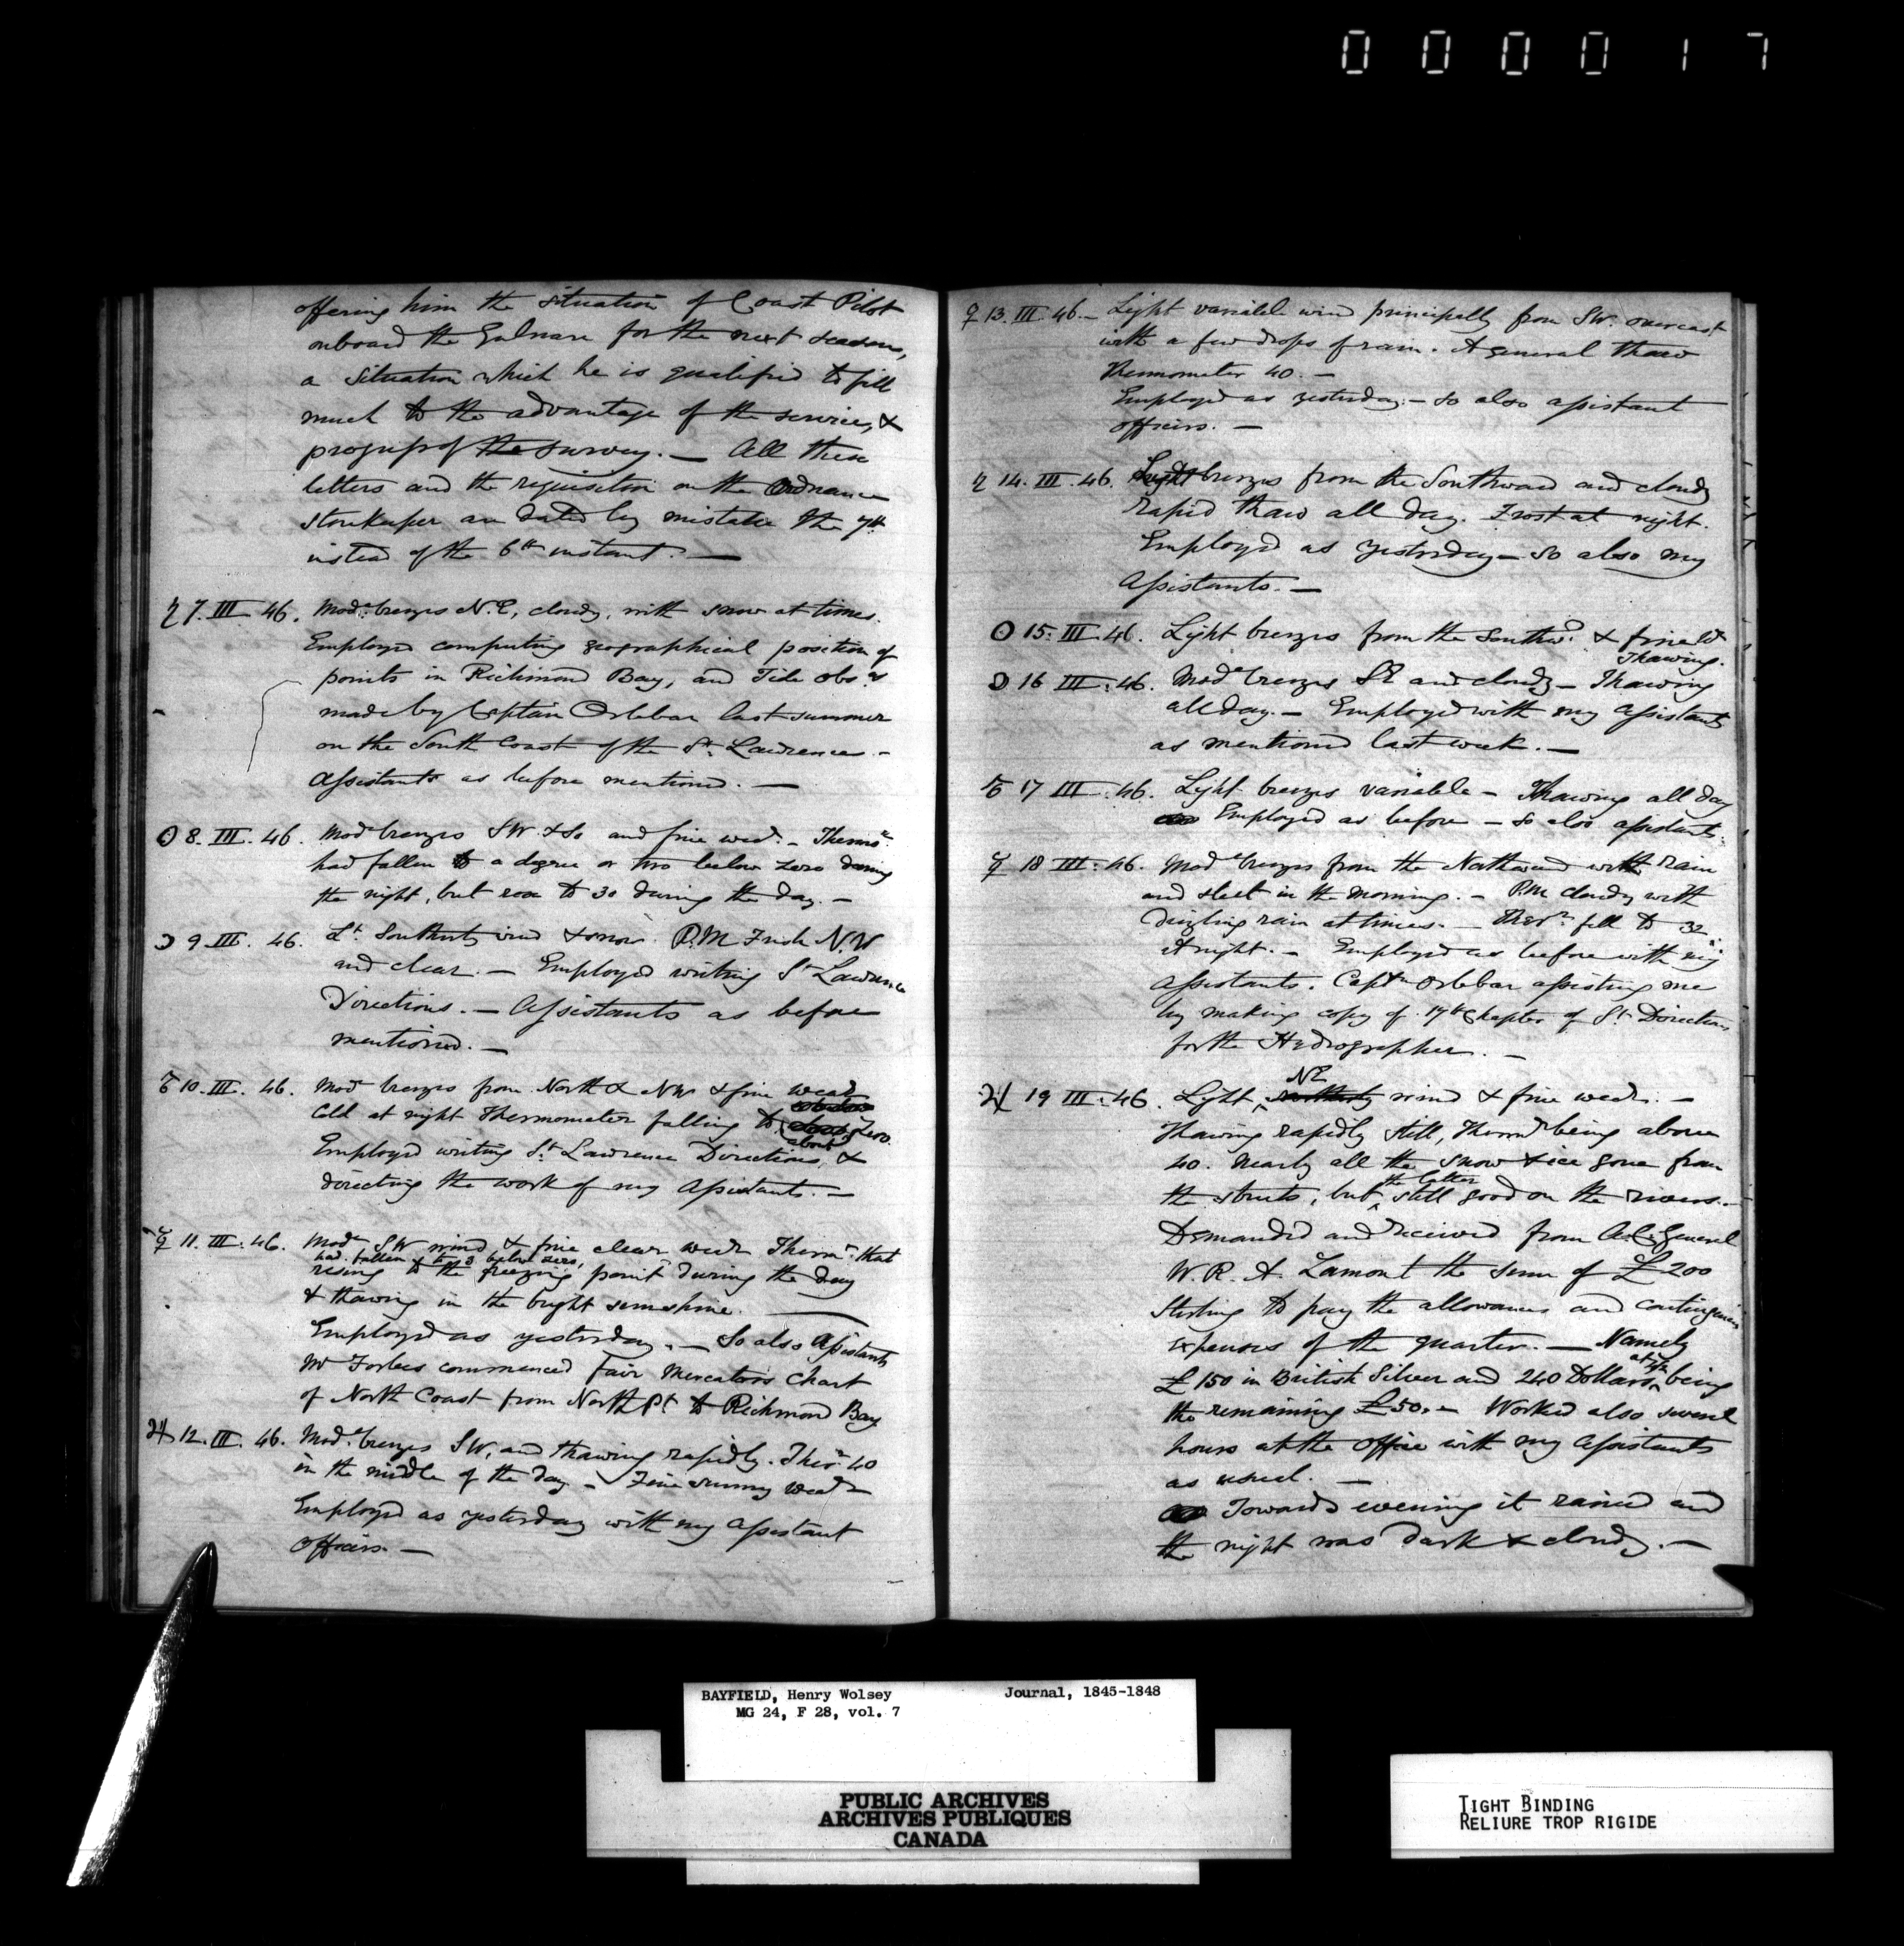 0 0 0 0 1 7
offering him the situation of Coast Pilot
onboard the Gulnare for the next season,
a situation which he is qualified to fill
much to the advantage of the service, &
progress of the survey. — All these
letters and the requisition on the Ordnance
Storekeeper are dated by mistake the 7th
instead of the 6th instant. —
♄ 7. III. 46. Modᵉ breezes N.E, cloudy, with snow at times.
Employed computing geographical position of
points in Richmond Bay, and Tide obsⁿˢ
made by Captain Orlebar last summer
on the South Coast of the Sᵗ Lawrence. –
Assistants as before mentioned. —
☉ 8. III. 46. Modᵉ breezes SW & So and fine weaʳ. – Thermʳ
had fallen to a degree or two below zero during
the night, but rose to 30 during the day. –
☽ 9 III. 46. Lᵗ Southerly wind & snow. P.M Fresh NW
and clear. — Employed writing Sᵗ Lawrence
Directions. — Assistants as before
mentioned. —
♂ 10. III. 46. Modᵉ breezes from North & NW & fine weaʳ
Cold at night Thermometer falling to about Zero.
Employed writing Sᵗ Lawrence Directions, &
directing the work of my Assistants. —
☿ 11. III. 46. Modᵉ SW wind & fine clear weaʳ Thermʳ that
had fallen to 3 below zero,
rising to the freezing point during the day
& thawing in the bright sunshine. —
Employed as yesterday. — So also Assistants
Mr Forbes commenced Fair Mercators Chart
of North Coast from North Pᵗ to Richmond Bay
♃ 12. III. 46. Modᵉ breezes SW, and thawing rapidly. Therʳ 40
in the middle of the day – Fine sunny weaʳ
Employed as yesterday with my Assistant
Officers. —
♀ 13. III. 46. – Light variable wind principally from SW. overcast
with a few drops of rain. A general thaw
Thermometer 40. —
Employed as yesterday. — So also Assistant
Officers. —
♄ 14. III. 46. Light breezes from the Southward and cloudy
Rapid thaw all day. Frost at night.
Employed as yesterday — So also my
Assistants. —
☉ 15. III. 46. Light breezes from the Southwᵈ & fine Wʳ
Thawing.
☽ 16 III. 46. Modᵉ breezes SE and cloudy — Thawing
all day. — Employed with my Assistants
as mentioned last week. —
♂ 17 III. 46. Light breezes variable — Thawing all day
Employed as before — So also assistants.
☿ 18 III. 46. Modᵉ breezes from the Northward with rain
and sleet in the morning. – P.M cloudy with
drizzling rain at times. — Therʳ fell to 32
at night. – Employed as before with my
Assistants. Captⁿ Orlebar assisting me
by making copy of 17th Chapter of Sᵗ Directions
for the Hydrographer. —
♃ 19 III. 46. Light NE wind & fine weaʳ. —
Thawing rapidly still, Thermʳ being above
40. Nearly all the snow & ice gone from
the streets, but the latter still good on the rivers. –
Demanded and received from A.C. General
W. R. A. Lamont the sum of £200
Sterling to pay the allowances and contingencies
expenses of the quarter. — Namely
£150 in British Silver and 240 Dollars being
the remaining £50. – Worked also several
hours at the Office with my Assistants
as usual. —
Towards evening it rained and
the night was dark & cloudy. —
BAYFIELD, Henry Wolsey Journal, 1845-1848
MG 24, F 28, vol. 7
PUBLIC ARCHIVES
ARCHIVES PUBLIQUES
CANADA
TIGHT BINDING
RELIURE TROP RIGIDE